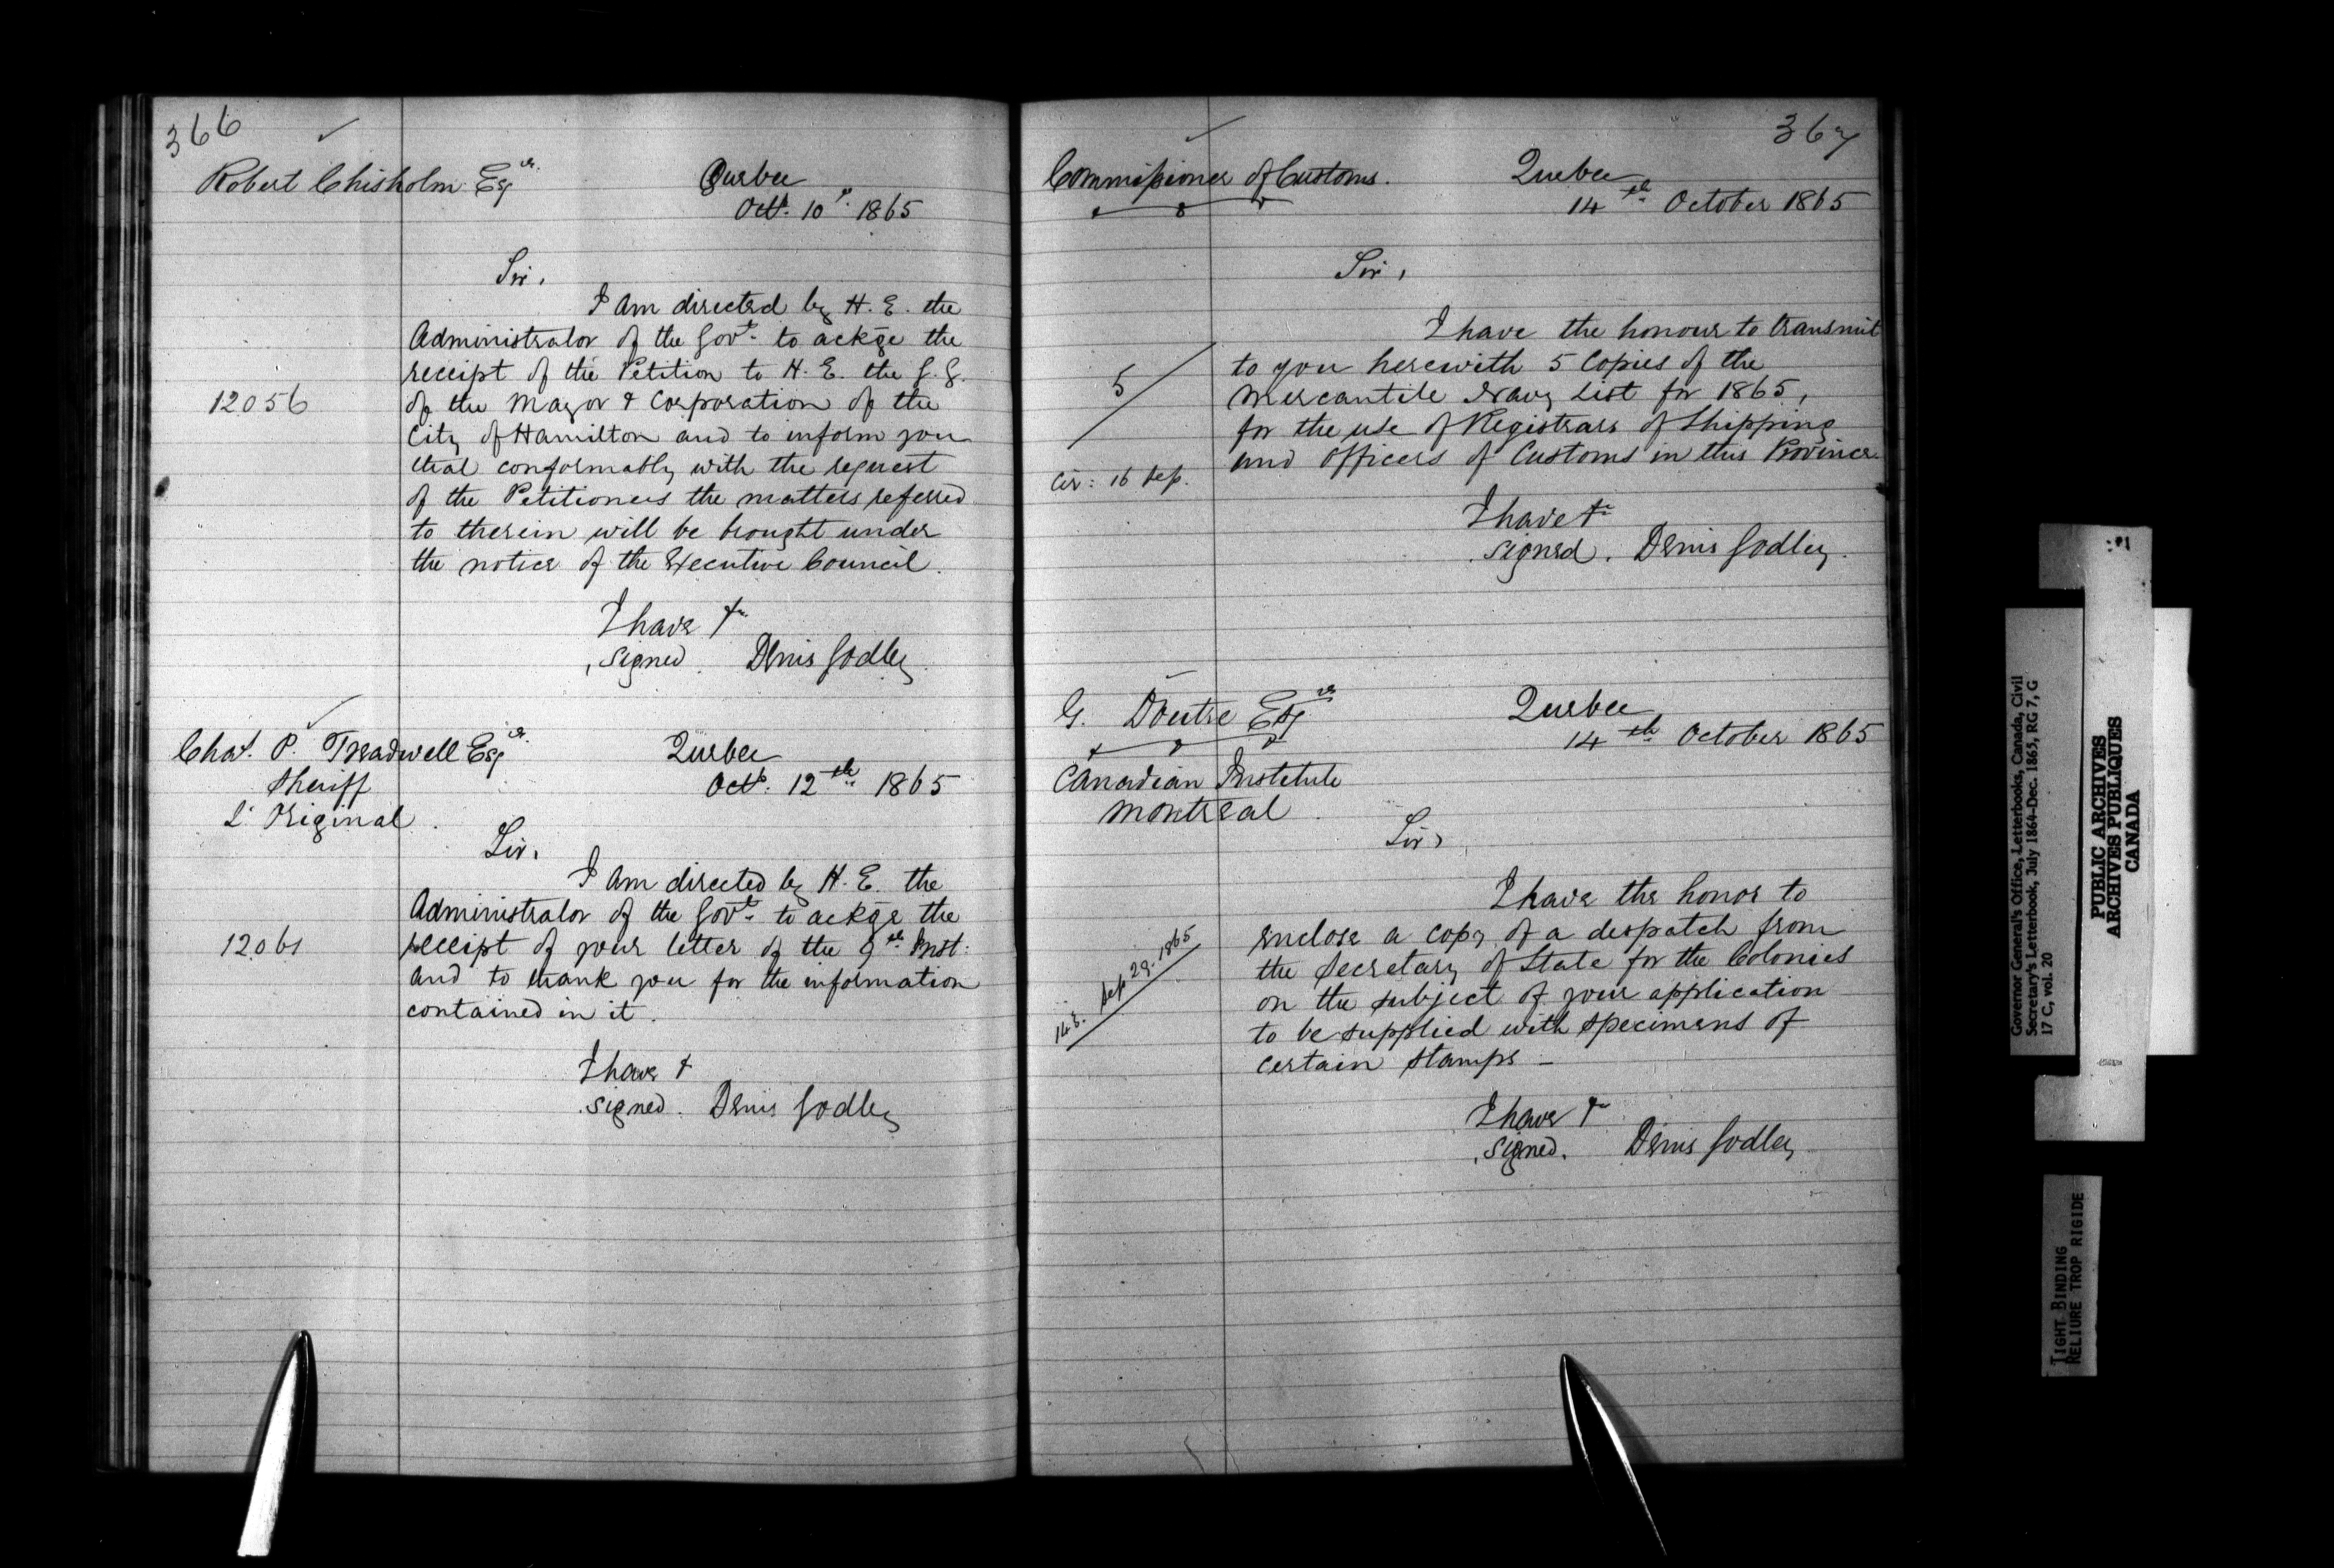 366
Robert Chisholm Esqre.
Quebec
Octr. 10th. 1865
Sir,
I am directed by H. E. the
Administrator of the Govt. to ackge the
receipt of the Petition to H. E. the G. G.
12056
of the Mayor & Corporation of the
City of Hamilton and to inform you
that conformably with the request
of the Petitioners the matters referred
to therein will be brought under
the notice of the Executive Council.
I have &c
signed. Denis Godley
Chas. P. Treadwell Esqre.
Sheriff
L'Original.
Quebec
Oct. 12th. 1865
Sir,
I am directed by H. E. the
Administrator of the Govt. to ackge the
12061
receipt of your letter of the 9th Inst:
and to thank you for the information
contained in it.
I have &
signed. Denis Godley
367
Commissioner of Customs.
Quebec
14th. October 1865
Sir,
I have the honour to transmit
to you herewith 5 Copies of the
5
Mercantile Navy List for 1865,
for the use of Registrars of Shipping
and Officers of Customs in this Province.
Cir: 16 Sep.
I have &c
signed. Denis Godley.
G. Doutre Esqre
Canadian Institute
Montreal.
Quebec
14th October 1865
Sir,
I have the honor to
enclose a copy of a despatch from
the Secretary of State for the Colonies
148. Sep 29. 1865
on the subject of your application
to be supplied with specimens of
certain stamps —
I have &c
signed. Denis Godley
Governor General's Office, Letterbooks, Canada, Civil
Secretary's Letterbook, July 1864-Dec. 1865, RG 7, G
17 C, vol. 20
PUBLIC ARCHIVES
ARCHIVES PUBLIQUES
CANADA
TIGHT BINDING
RELIURE TROP RIGIDE